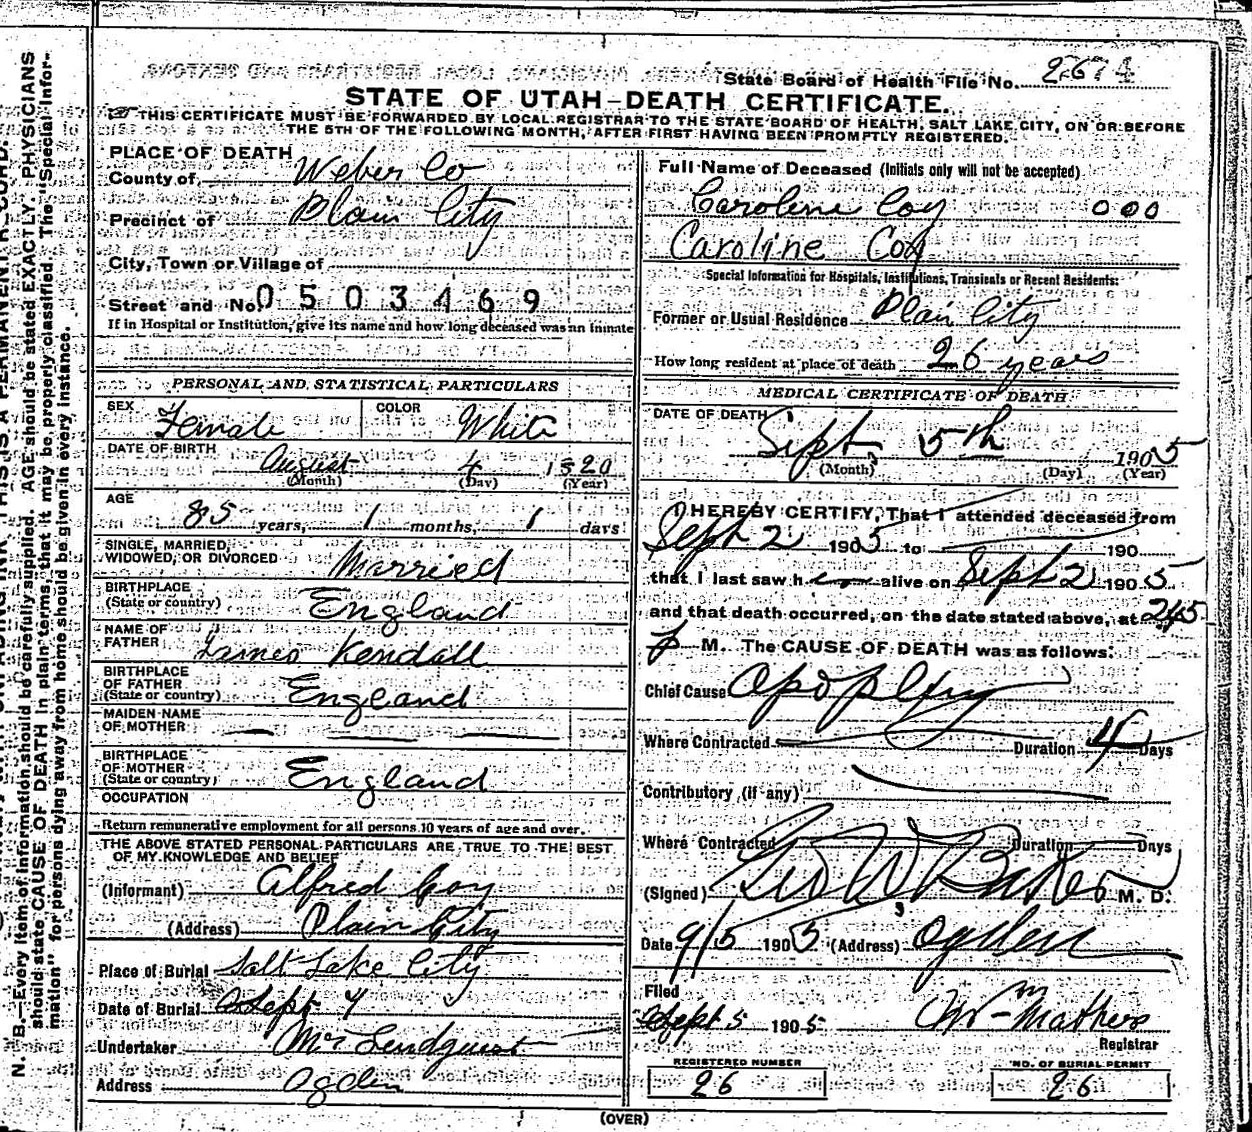 State Board of Health File No. 2674
STATE OF UTAH-DEATH CERTIFICATE.
THIS CERTIFICATE MUST BE FORWARDED BY LOCAL REGISTRAR TO THE STATE BOARD OF HEALTH, SALT LAKE CITY, ON OR BEFORE
THE 5TH OF THE FOLLOWING MONTH, AFTER FIRST HAVING BEEN PROMPTLY REGISTERED.
PLACE OF DEATH
County of Weber Co
Precinct of Plain City
City, Town or Village of
Street and No. 0503469
If in Hospital or Institution, give its name and how long deceased was an inmate
PERSONAL AND STATISTICAL PARTICULARS
SEX Female COLOR White
DATE OF BIRTH August 4 1820
(Month) (Day) (Year)
AGE 85 years, 1 months, 1 days
SINGLE, MARRIED,
WIDOWED, OR DIVORCED Married
BIRTHPLACE
(State or country) England
NAME OF
FATHER James Kendall
BIRTHPLACE
OF FATHER
(State or country) England
MAIDEN NAME
OF MOTHER
BIRTHPLACE
OF MOTHER
(State or country) England
OCCUPATION
Return remunerative employment for all persons 10 years of age and over.
THE ABOVE STATED PERSONAL PARTICULARS ARE TRUE TO THE BEST
OF MY KNOWLEDGE AND BELIEF
(Informant) Alfred Coy
(Address) Plain City
Place of Burial Salt Lake City
Date of Burial Sept 7
Undertaker Mr Lendquist
Address Ogden
Full Name of Deceased (Initials only will not be accepted)
Caroline Coy 000
Caroline Coy
Special Information for Hospitals, Institutions, Transients or Recent Residents:
Former or Usual Residence Plain City
How long resident at place of death 26 years
MEDICAL CERTIFICATE OF DEATH
DATE OF DEATH Sept 5th 1905
(Month) (Day) (Year)
I HEREBY CERTIFY, That I attended deceased from
Sept 2 1905 to 190
that I last saw her alive on Sept 2 1905
and that death occurred, on the date stated above, at 245
P M. The CAUSE OF DEATH was as follows:
Chief Cause Apoplexy
Where Contracted Duration 4 Days
Contributory (if any)
Where Contracted Duration Days
(Signed) Geo W Baker M. D.
Date 9/5 1905 (Address) Ogden
Filed
Sept 5 1905 Mathers
Registrar
REGISTERED NUMBER NO. OF BURIAL PERMIT
26 26
(OVER)
N. B.—Every item of information should be carefully supplied. AGE should be stated EXACTLY. PHYSICIANS
should state CAUSE OF DEATH in plain terms, that it may be properly classified. The "Special Infor-
mation" for persons dying away from home should be given in every instance.